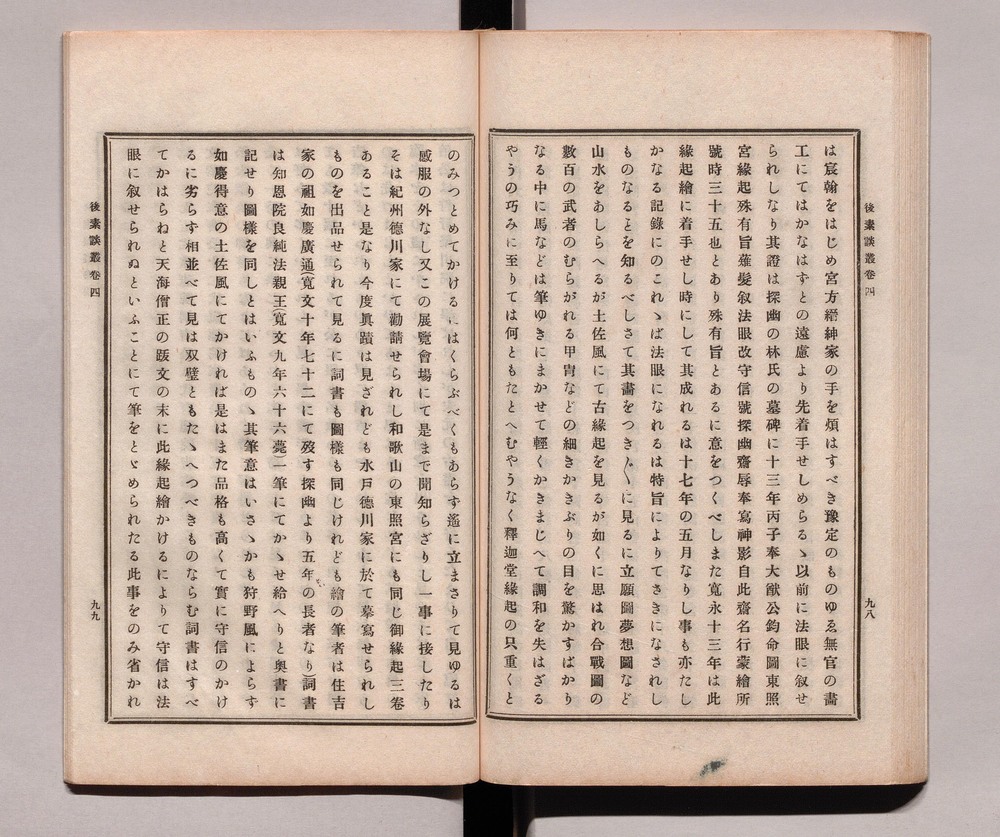 後素談叢卷四
九八
は宸翰をはじめ宮方縉紳家の手を煩はすべき豫定のものゆゑ無官の畵
工にてはかなはすとの遠慮より先着手せしめらるゝ以前に法眼に叙せ
られしなり其證は探幽の林氏の墓碑に十三年丙子奉大猷公鈞命圖東照
宮緣起殊有旨薙髮叙法眼改守信號探幽齋辱奉寫神影自此齋名行蒙繪所
號時三十五也とあり殊有旨とあるに意をつくべしまた寬永十三年は此
緣起繪に着手せし時にして其成れるは十七年の五月なりし事も亦たし
かなる記錄にのこれゝば法眼になれるは特旨によりてさきになされし
ものなることを知るべしさて其畵をつき〴〵に見るに立願圖夢想圖など
山水をあしらへるが土佐風にて古緣起を見るが如くに思はれ合戰圖の
數百の武者のむらがれる甲冑などの細きかきぶりの目を驚かすばかり
なる中に馬などは筆ゆきにまかせて輕くかきまじへて調和を失はざる
やうの巧みに至りては何ともたとへむやうなく釋迦堂緣起の只重くと
のみつとめてかけるにはくらぶべくもあらす遙に立まさりて見ゆるは
感服の外なし又この展覽會場にて是まで聞知らざりし一事に接したり
そは紀州德川家にて勸請せられし和歌山の東照宮にも同じ御緣起三卷
あること是なり今度眞蹟は見ざれども水戶德川家に於て摹寫せられし
ものを出品せられて見るに詞書も圖樣も同じけれども繪の筆者は住吉
家の祖如慶廣通(寬文十年七十二にて歿す探幽より五年の長者なり)詞書
は知恩院良純法親王(寬文九年六十六薨一筆にてかゝせ給へりと奧書に
記せり圖樣を同しとはいふものゝ其筆意はいさゝかも狩野風によらす
如慶得意の土佐風にてかければ是はまた品格も高くて實に守信のかけ
るに劣らす相並べて見は双璧ともたゝへつべきものならむ詞書はすべ
てかはらねと天海僧正の䟦文の末に此緣起繪かけるによりて守信は法
眼に叙せられぬといふことにて筆をとゞめられたる此事をのみ省かれ
後素談叢卷四
九九